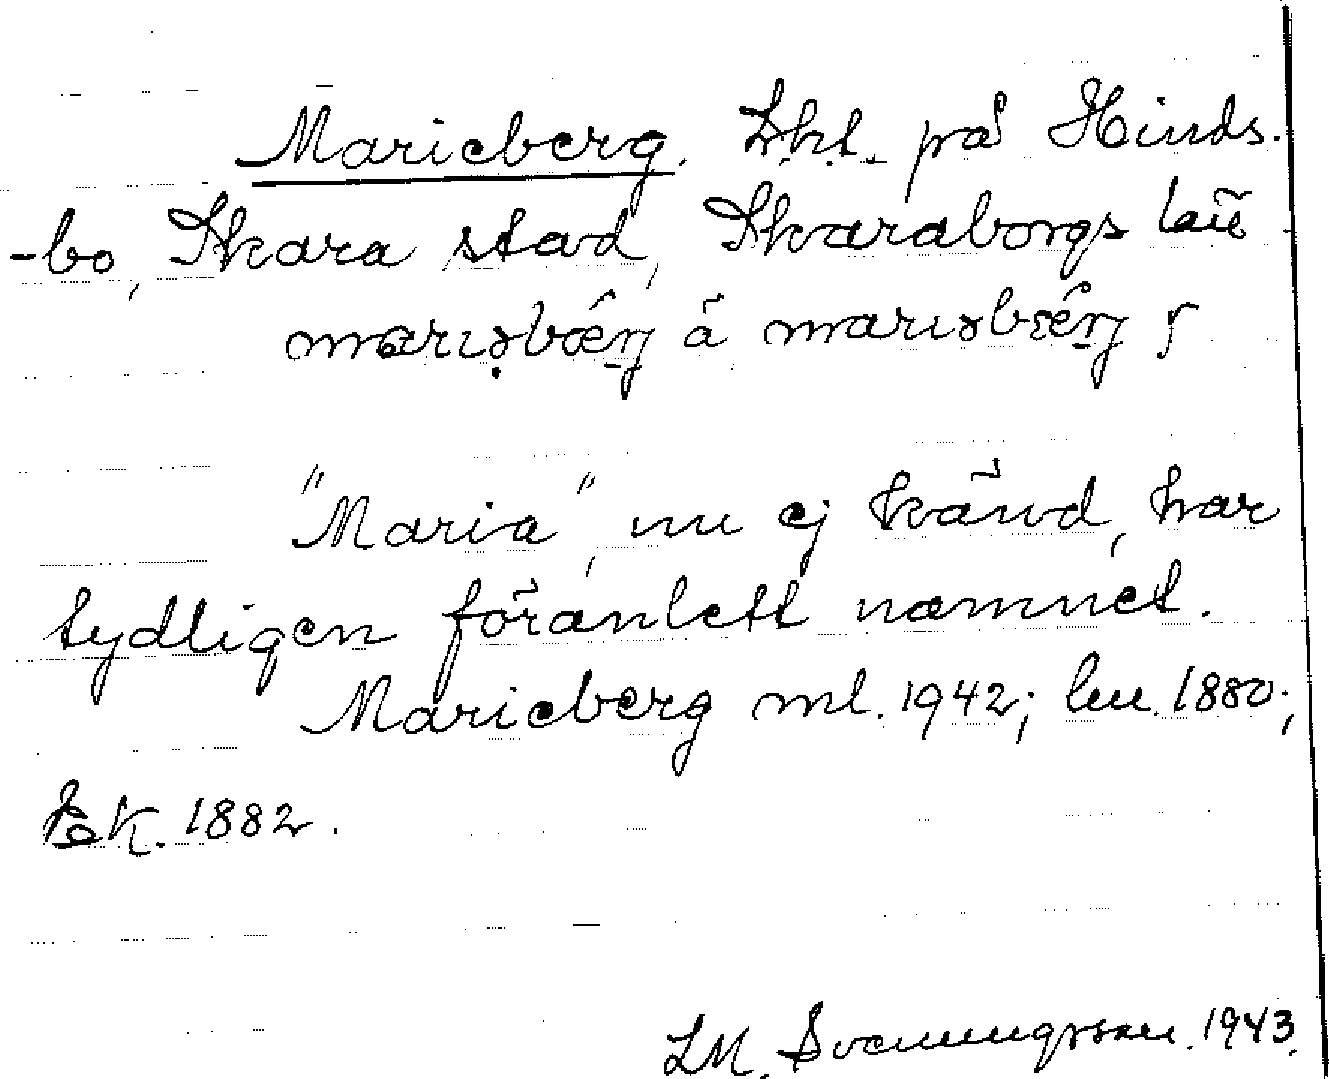 Marieberg. Lht. på Hinds-
-bo, Skara stad, Skaraborgs län
marıəbǽrj å marıəbǽrj ʃ
"Maria", nu ej känd, har
tydligen föranlett namnet.
Marieberg ml. 1942; hu. 1880;
Ek. 1882.
LM. Svenungsson. 1943.